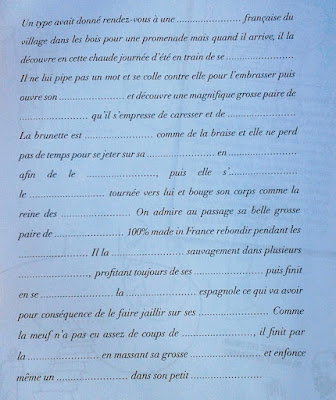 Un type avait donné rendez-vous à une ........................ française du
village dans les bois pour une promenade mais quand il arrive, il la
découvre en cette chaude journée d'été en train de se ........................
Il ne lui pipe pas un mot et se colle contre elle pour l'embrasser puis
ouvre son ........................ et découvre une magnifique grosse paire de
........................ qu'il s'empresse de caresser et de ........................
La brunette est ........................ comme de la braise et elle ne perd
pas de temps pour se jeter sur sa ........................ en ........................
afin de le ........................, puis elle s'........................
le ........................ tournée vers lui et bouge son corps comme la
reine des ........................ On admire au passage sa belle grosse
paire de ........................ 100% made in France rebondir pendant les
........................ Il la ........................ sauvagement dans plusieurs
........................, profitant toujours de ses ........................ puis finit
en se ........................ la ........................ espagnole ce qui va avoir
pour conséquence de le faire jaillir sur ses ........................ Comme
la meuf n'a pas eu assez de coups de ........................, il finit par
la ........................ en massant sa grosse ........................ et enfonce
même un ........................ dans son petit ........................